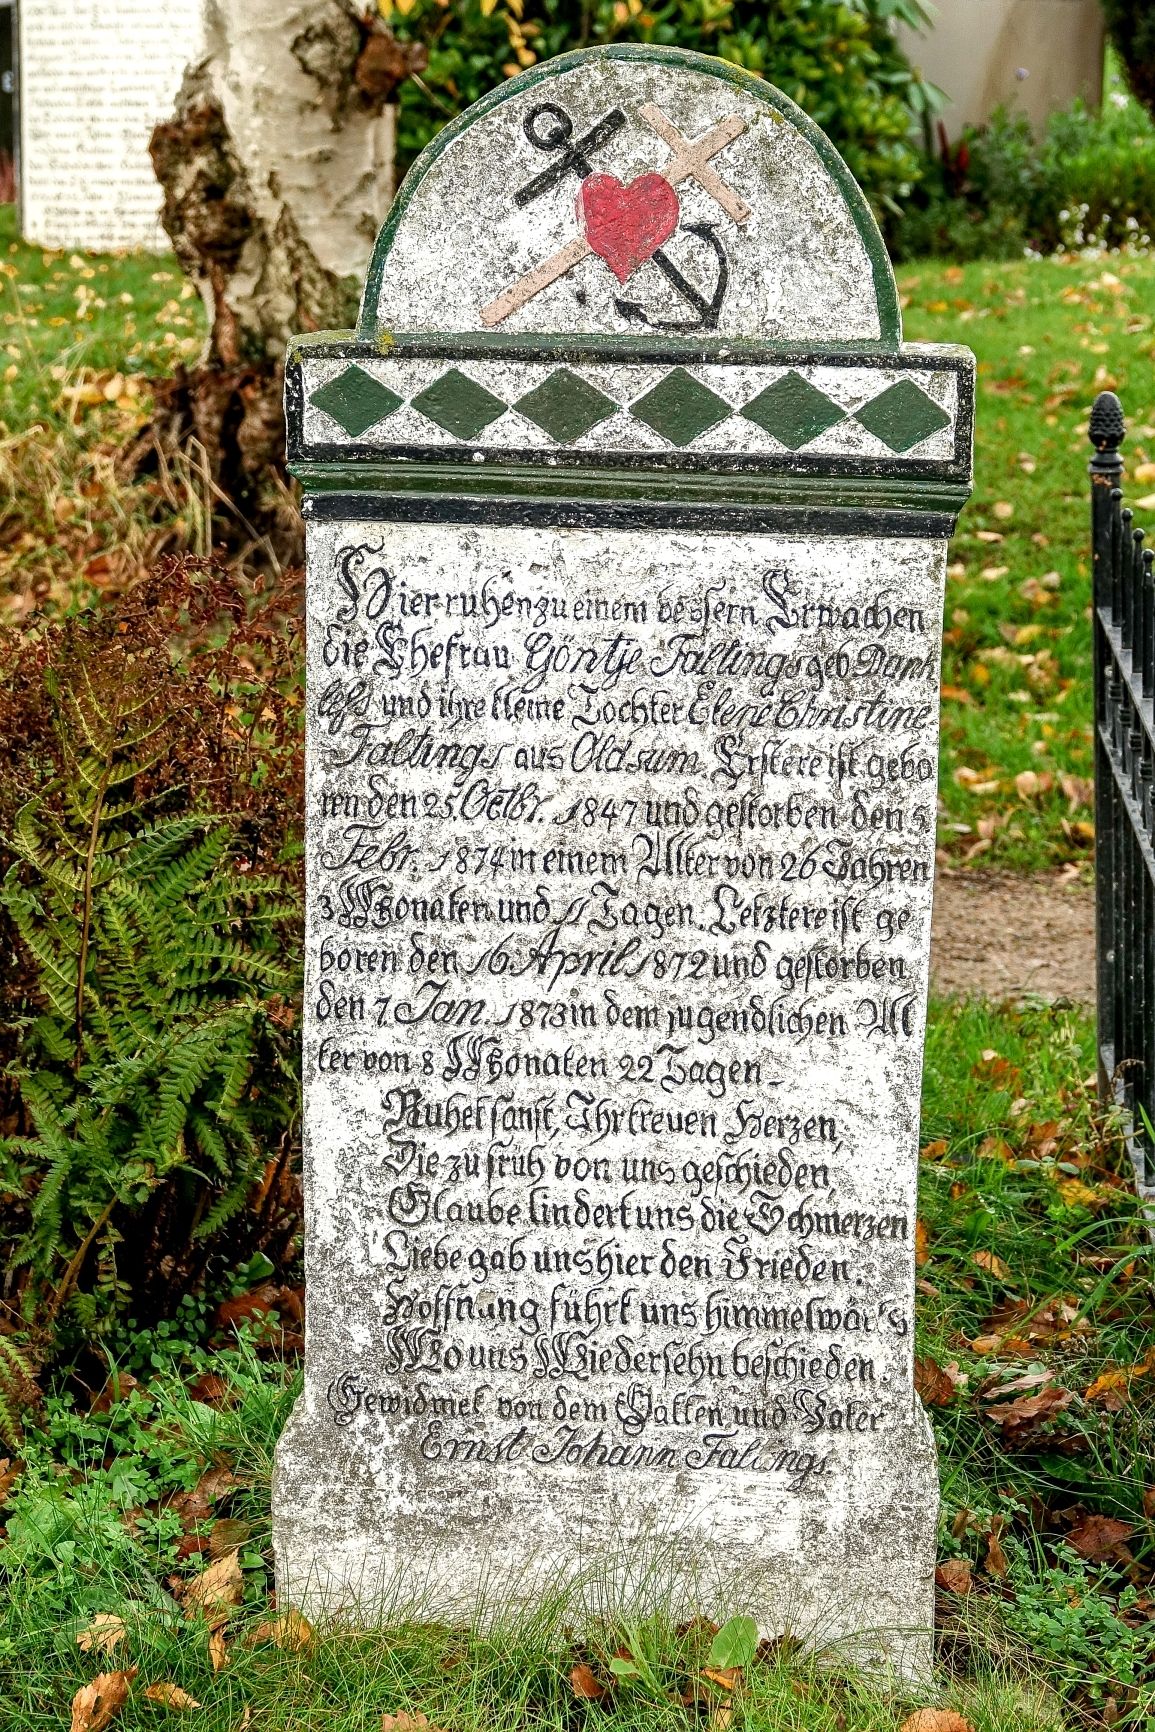 Hier ruhen zu einem bessern Erwachen
die Ehefrau Göntje Faltings geb.
und ihre kleine Tochter Elene Christine
Faltings aus Oldsum Erstere ist gebo
ren den 25. Octbr. 1847 und gestorben den 5
Febr. 1874 in einem Alter von 26 Jahren
3 Monaten und 11 Tagen. Letztere ist ge
boren den 16. April 1872 und gestorben
den 7. Jan. 1873 in dem jugendlichen Al
ter von 8 Monaten 22 Tagen
Ruhet sanft, Ihr treuen Herzen,
Die zu fruh von uns geschieden,
Glaube lindert uns die Schmerzen
Liebe gab uns hier den Frieden.
Hoffnung führt uns himmelwärts
Wo uns Wiedersehn beschieden.
Gewidmet von dem Gatten und Vater
Ernst Johann Faltings.